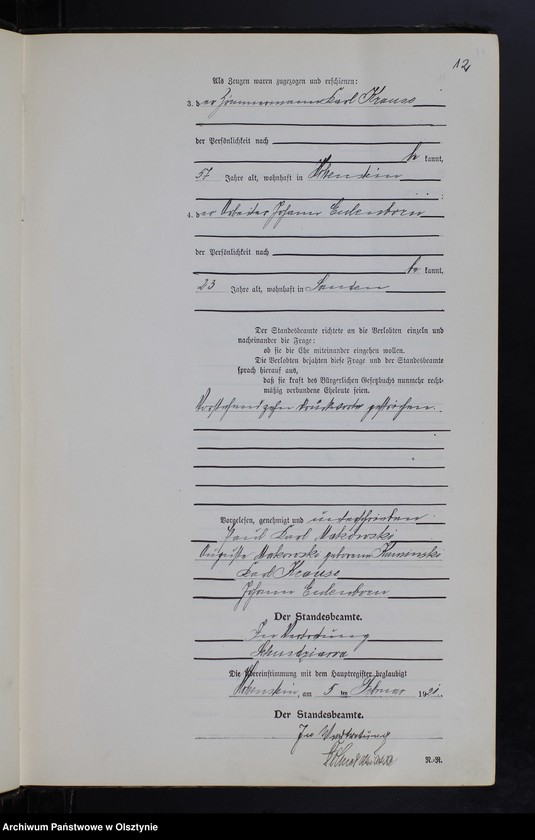 12
Als Zeugen waren zugezogen und erschienen:
3. der Zimmermann Karl Krause
der Persönlichkeit nach
be kannt,
57 Jahre alt, wohnhaft in Hohenstein
;
4. der Arbeiter Johann Eulenborn
der Persönlichkeit nach
be kannt,
23 Jahre alt, wohnhaft in
Der Standesbeamte richtete an die Verlobten einzeln und
nacheinander die Frage:
ob sie die Ehe miteinander eingehen wollen.
Die Verlobten bejahten diese Frage und der Standesbeamte
sprach hierauf aus,
daß sie kraft des Bürgerlichen Gesetzbuchs nunmehr recht-
mäßig verbundene Eheleute seien.
Vorstehend zehn Druckworte gestrichen.
Vorgelesen, genehmigt und unterschrieben
Paul Karl Makowski
Auguste Makowski geborene Kaminski
Karl Krause
Johann Eulenborn
Der Standesbeamte.
In Vertretung
Die Übereinstimmung mit dem Hauptregister beglaubigt
Hohenstein, am 5 ten Februar 1921.
Der Standesbeamte.
In Vertretung
N.-R.
Archiwum Państwowe w Olsztynie